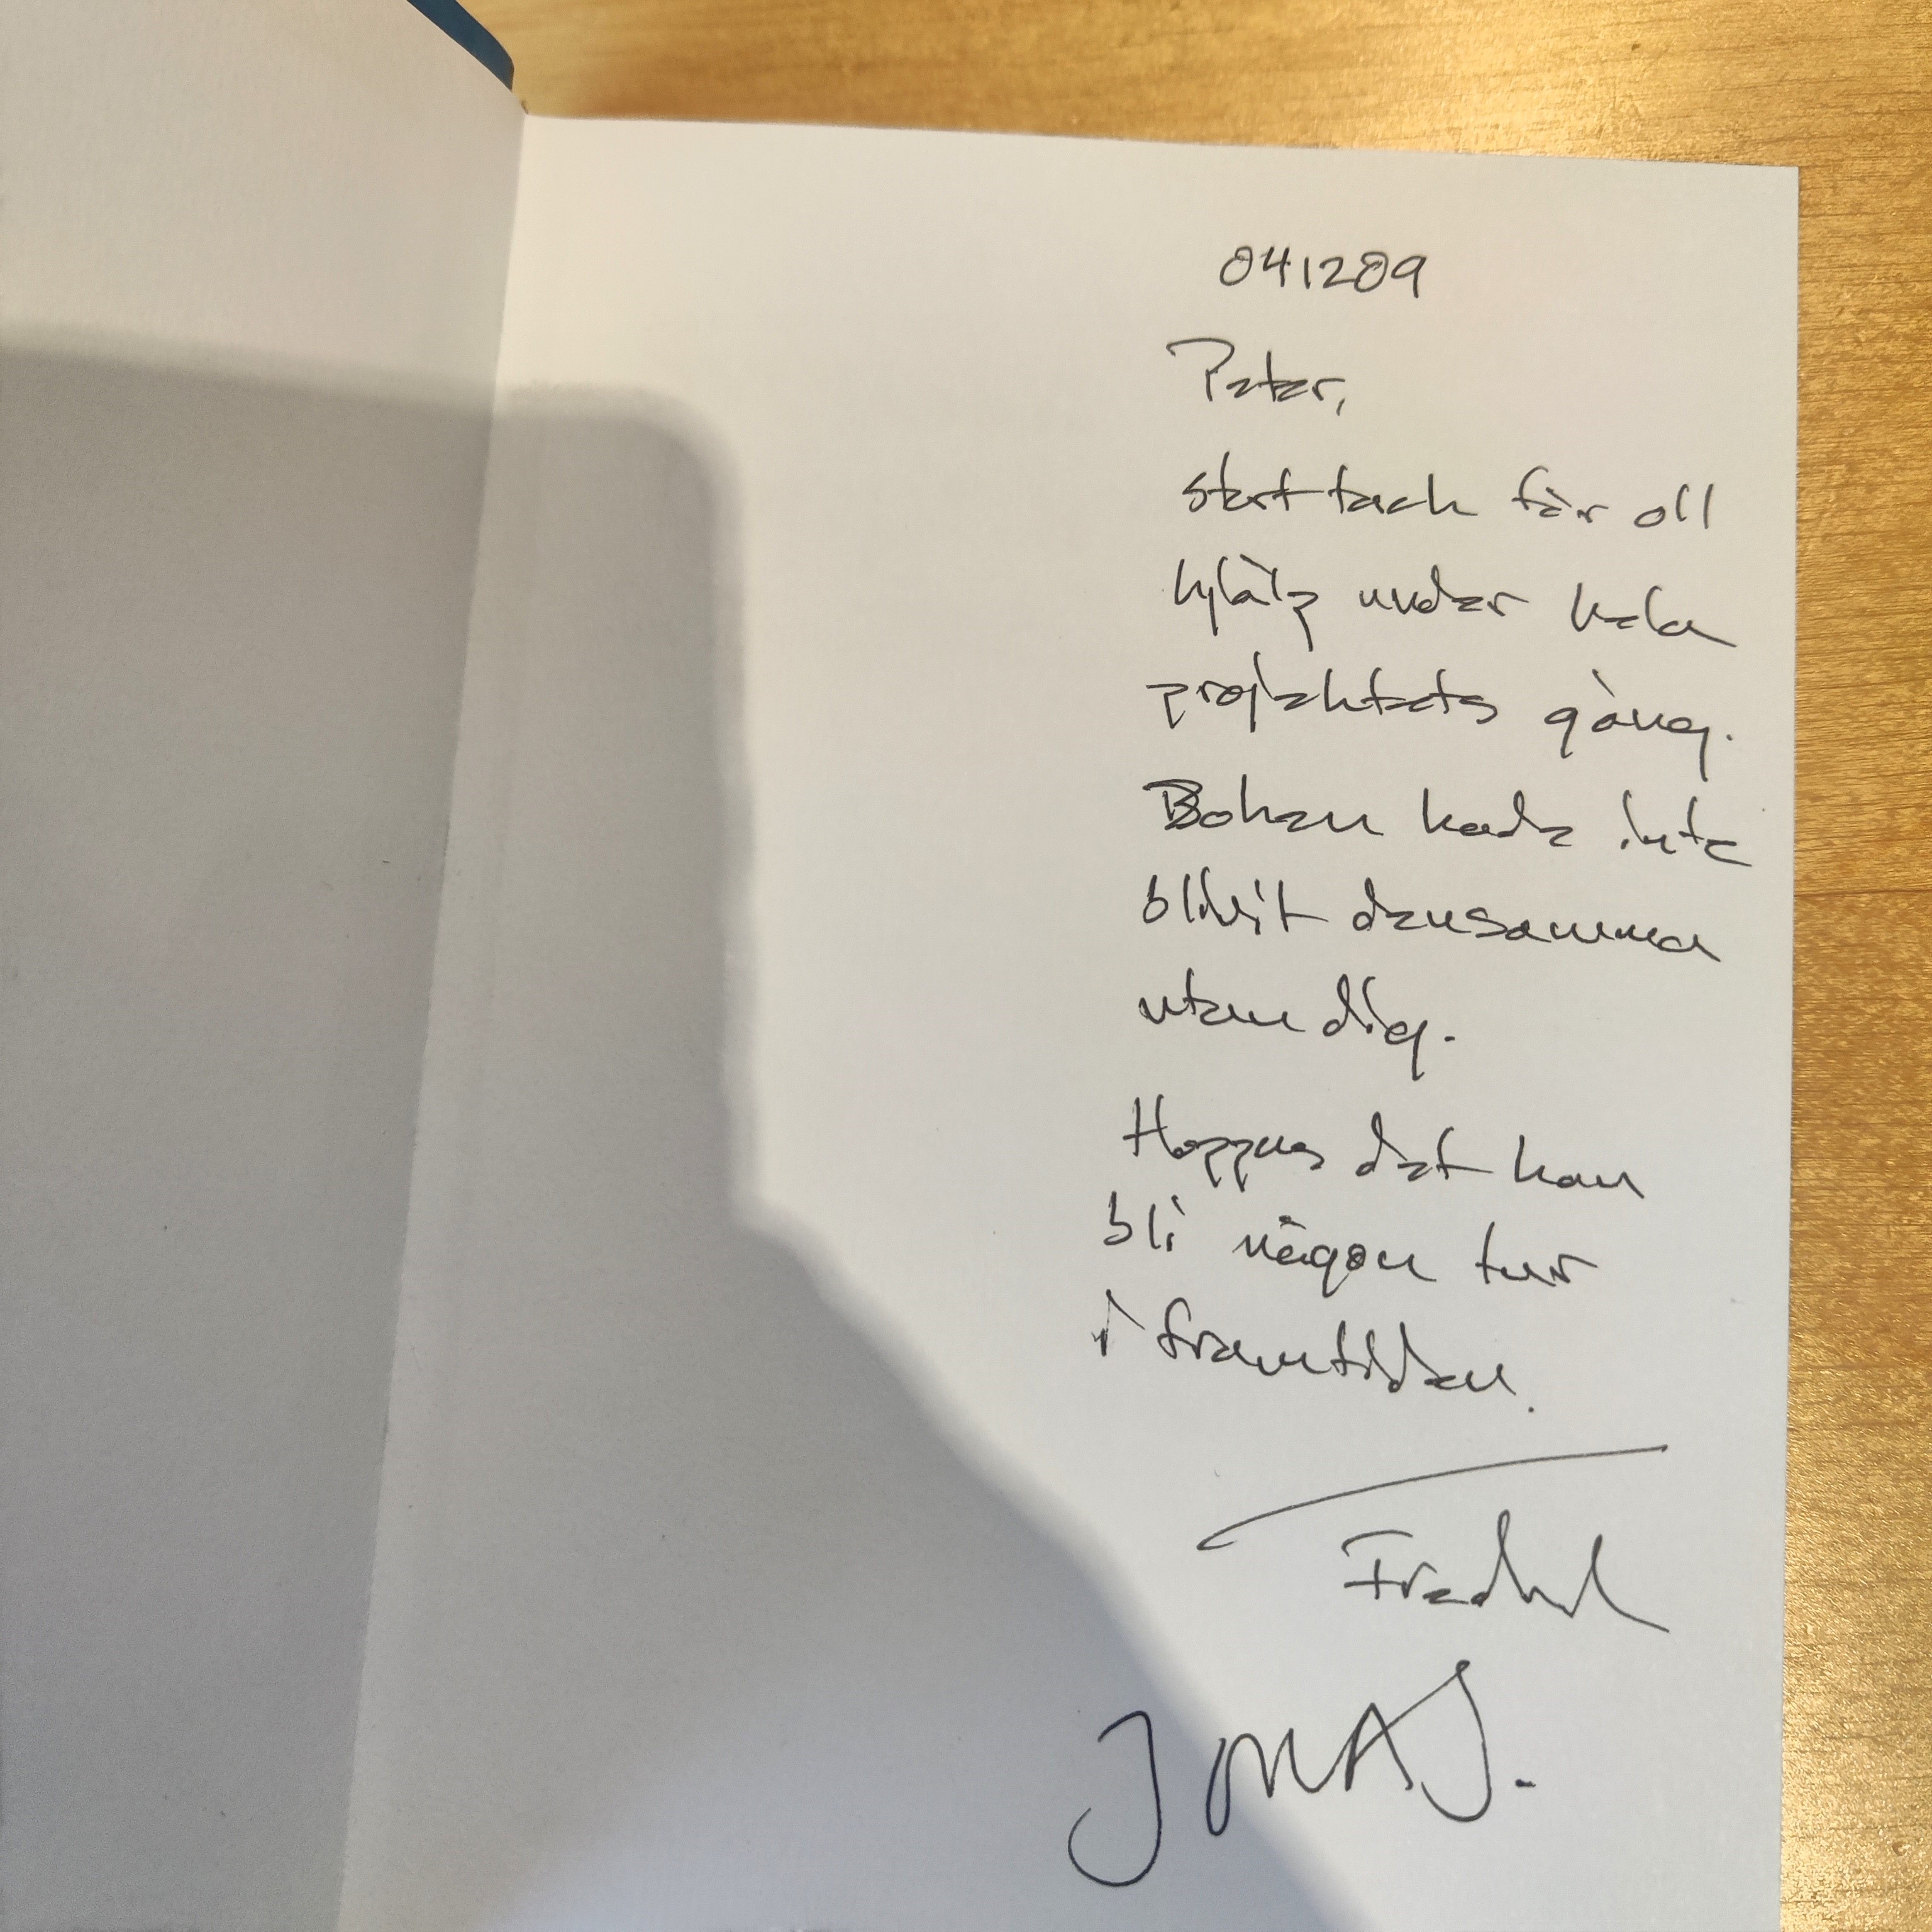 041209
Peter,
stort tack för all
hjälp under hela
projektets gång.
Boken hade inte
blivit densamma
utan dig.
Hoppas det kan
bli någon tur
i framtiden.
JONAS.